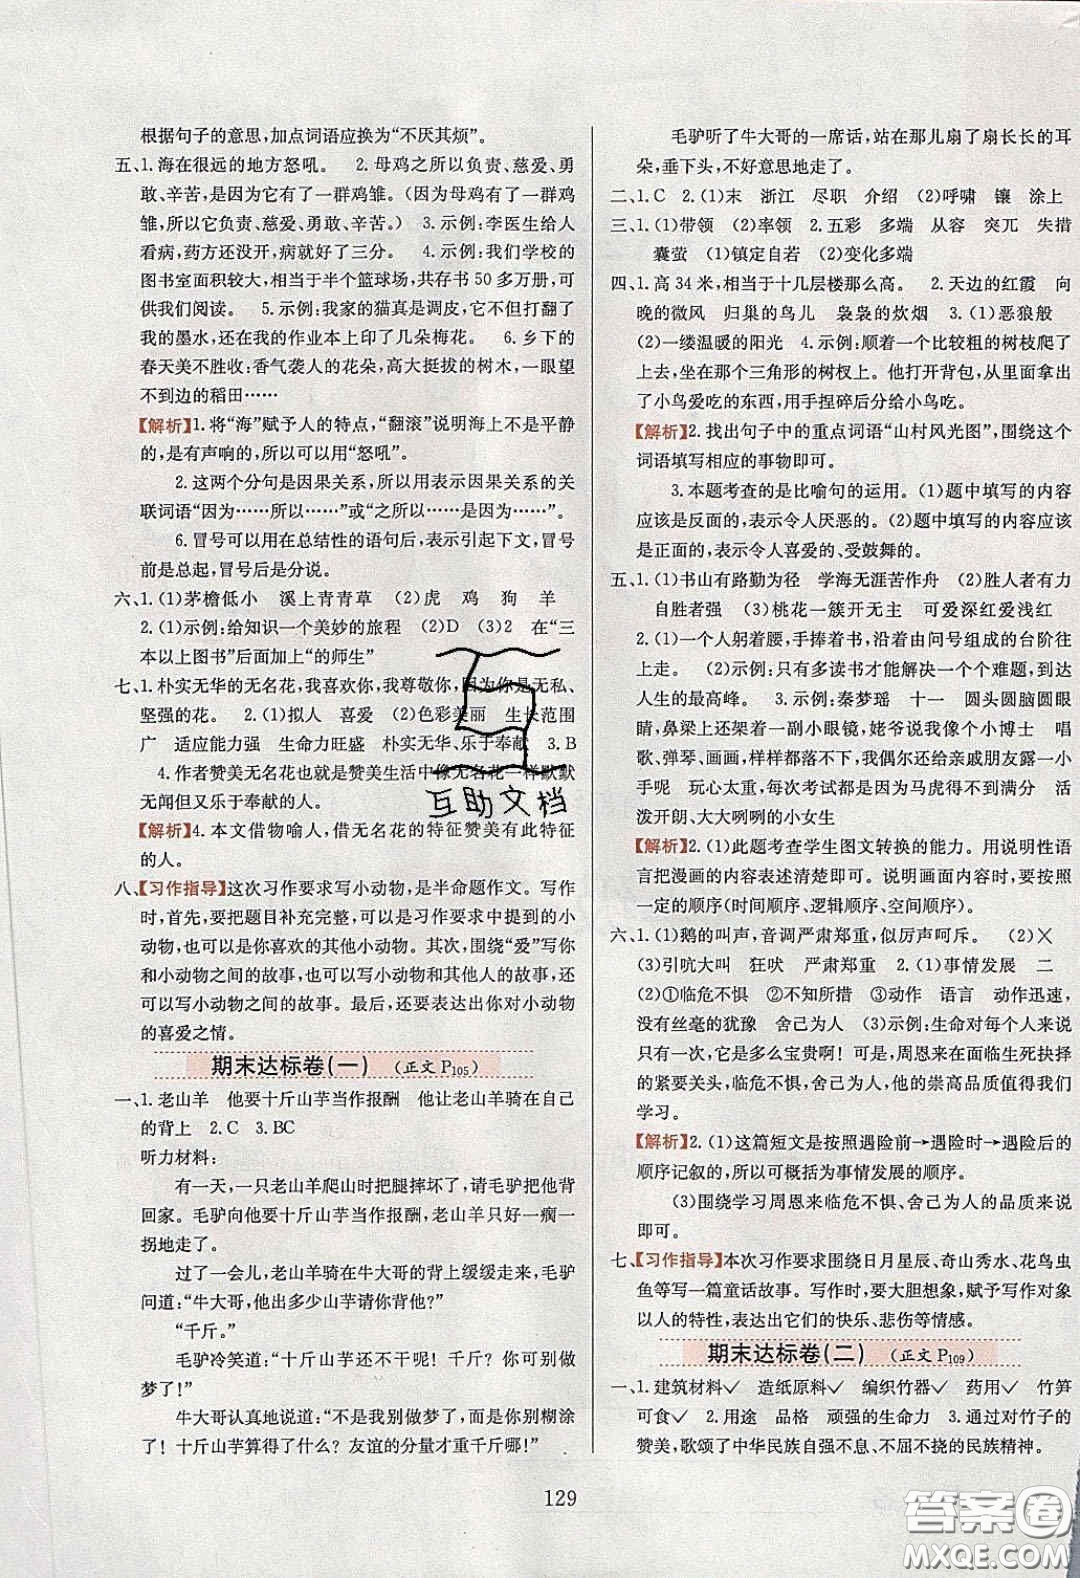 根据句子的意思,加点词语应换为“不厌其烦”。
五、1.海在很远的地方怒吼。 2.母鸡之所以负责、慈爱、勇
敢、辛苦,是因为它有了一群鸡雏。(因为母鸡有了一群鸡
雏,所以它负责、慈爱、勇敢、辛苦。) 3.示例:李医生给人
看病,药方还没开,病就好了三分。 4.示例:我们学校的
图书室面积较大,相当于半个篮球场,共存书50多万册,可
供我们阅读。 5.示例:我家的猫真是调皮,它不但打翻了
我的墨水,还在我的作业本上印了几朵梅花。 6.乡下的
春天美不胜收:香气袭人的花朵,高大挺拔的树木,一眼望
不到边的稻田……
【解析】1.将“海”赋予人的特点,“翻滚”说明海上不是平静
的,是有声响的,所以可以用“怒吼”。
2.这两个分句是因果关系,所以用表示因果关系的关
联词语“因为……所以……”或“之所以……是因为……”。
6.冒号可以用在总结性的语句后,表示引起下文,冒号
前是总起,冒号后是分说。
六、1.(1)茅檐低小 溪上青青草 (2)虎 鸡 狗 羊
2.(1)示例:给知识一个美妙的旅程 (2)D (3)2 在“三
本以上图书”后面加上“的师生”
七、1.朴实无华的无名花,我喜欢你,我尊敬你,因为你是无私、
坚强的花。 2.(1)拟人 喜爱 (2)色彩美丽 生长范围
广 适应能力强 生命力旺盛 朴实无华、乐于奉献 3.B
4.作者赞美无名花也就是赞美生活中像无名花一样默默
无闻但又乐于奉献的人。
【解析】4.本文借物喻人,借无名花的特征赞美有此特征
的人。
八、【习作指导】这次习作要求写小动物,是半命题作文。写作
时,首先,要把题目补充完整,可以是习作要求中提到的小
动物,也可以是你喜欢的其他小动物。其次,围绕“爱”写你
和小动物之间的故事,也可以写小动物和其他人的故事,还
可以写小动物之间的故事。最后,还要表达出你对小动物
的喜爱之情。
期末达标卷(一) (正文P105)
一、1.老山羊 他要十斤山芋当作报酬 他让老山羊骑在自己
的背上 2.C 3.BC
听力材料:
有一天,一只老山羊爬山时把腿摔坏了,请毛驴把他背
回家。毛驴向他要十斤山芋当作报酬,老山羊只好一瘸一
拐地走了。
过了一会儿,老山羊骑在牛大哥的背上缓缓走来,毛驴
问道:“牛大哥,他出多少山芋请你背他?”
“千斤。”
毛驴冷笑道:“十斤山芋还不干呢!千斤?你可别做
梦了!”
牛大哥认真地说道:“不是我别做梦了,而是你别糊涂
了!十斤山芋算得了什么?友谊的分量才重千斤哪!”
毛驴听了牛大哥的一席话,站在那儿扇了扇长长的耳
朵,垂下头,不好意思地走了。
二、1.C 2.(1)末 浙江 尽职 介绍 (2)呼啸 镶 涂上
三、1.(1)带领 (2)率领 2.五彩 多端 从容 突兀 失措
囊萤 (1)镇定自若 (2)变化多端
四、1.高34米,相当于十几层楼那么高。 2.天边的红霞 向
晚的微风 归巢的鸟儿 袅袅的炊烟 3.(1)恶狼般
(2)一缕温暖的阳光 4.示例:顺着一个比较粗的树枝爬了
上去,来到那个三角形的树杈上。他打开背包,从里面拿了
小鸟爱吃的东西,用手捏碎后分给小鸟吃。
【解析】2.找出句子中的重点词语“山村风光图”,围绕这个
词语填写相应的事物即可。
3.本题考查的是比喻句的运用。(1)题中填写的内容
应该是反面的,表示令人厌恶的。(2)题中填写的内容应该
是正面的,表示令人喜爱的、受鼓舞的。
五、1.(1)书山有路勤为径 学海无涯苦作舟 (2)胜人者有力
自胜者强 (3)桃花一簇开无主 可爱深红爱浅红
2.(1)一个人躬着腰,手捧着书,沿着由问号组成的台阶往
上走。 (2)示例:只有多读书才能解决一个个难题,到达
人生的最高峰。 3.示例:秦梦瑶 十一 圆头圆脑圆眼
睛,鼻梁上还架着一副小眼镜,姥爷说我像个小博士 唱
歌、弹琴、画画,样样都落不下,我偶尔还给亲戚朋友露一
手呢 玩心太重,每次考试都是因为马虎得不到满分 活
泼开朗、大大咧咧的小女生
【解析】2.(1)此题考查学生图文转换的能力。用说明性语
言把漫画的内容表述清楚即可。描写画面内容,要按照
一定的顺序(时间顺序、逻辑顺序、空间顺序)。
六、1.(1)鹅的叫声,音调严肃郑重,似厉声呵斥。 (2)×
(3)引吭大叫 狂吠 严肃郑重 2.(1)事情发展 二
(2)①临危不惧 ②不知所措 ③动作 语言 动作迅速,
没有丝毫的犹豫 舍己为人 (3)示例:生命对每个人来
说只有一次,是多么宝贵啊!可是,周恩来在面临生死抉择
的紧要关头,临危不惧,舍己为人,他的崇高品质值得我们
学习。
【解析】2.(1)这篇短文是按照遇险前→遇险时→遇险后的
顺序记叙的,所以可概括为事情发展的顺序。
(3)围绕学习周恩来临危不惧、舍己为人的品质来说
即可。
七、【习作指导】本次习作要求围绕日月星辰、奇山秀水、花鸟虫
鱼等写一篇童话故事。写作时,要大胆想象,赋予写作对象
以人的特性,表达出它们的快乐、悲伤等情感。
期末达标卷(二) (正文P109)
一、1.建筑材料✓ 造纸原料✓ 编织竹器✓ 药用✓ 竹笋
可食✓ 2.用途 品格 顽强的生命力 3.通过对竹子的
赞美,歌颂了中华民族自强不息、不屈不挠的民族精神。
129
互助文档
答案圈
MXQE.COM